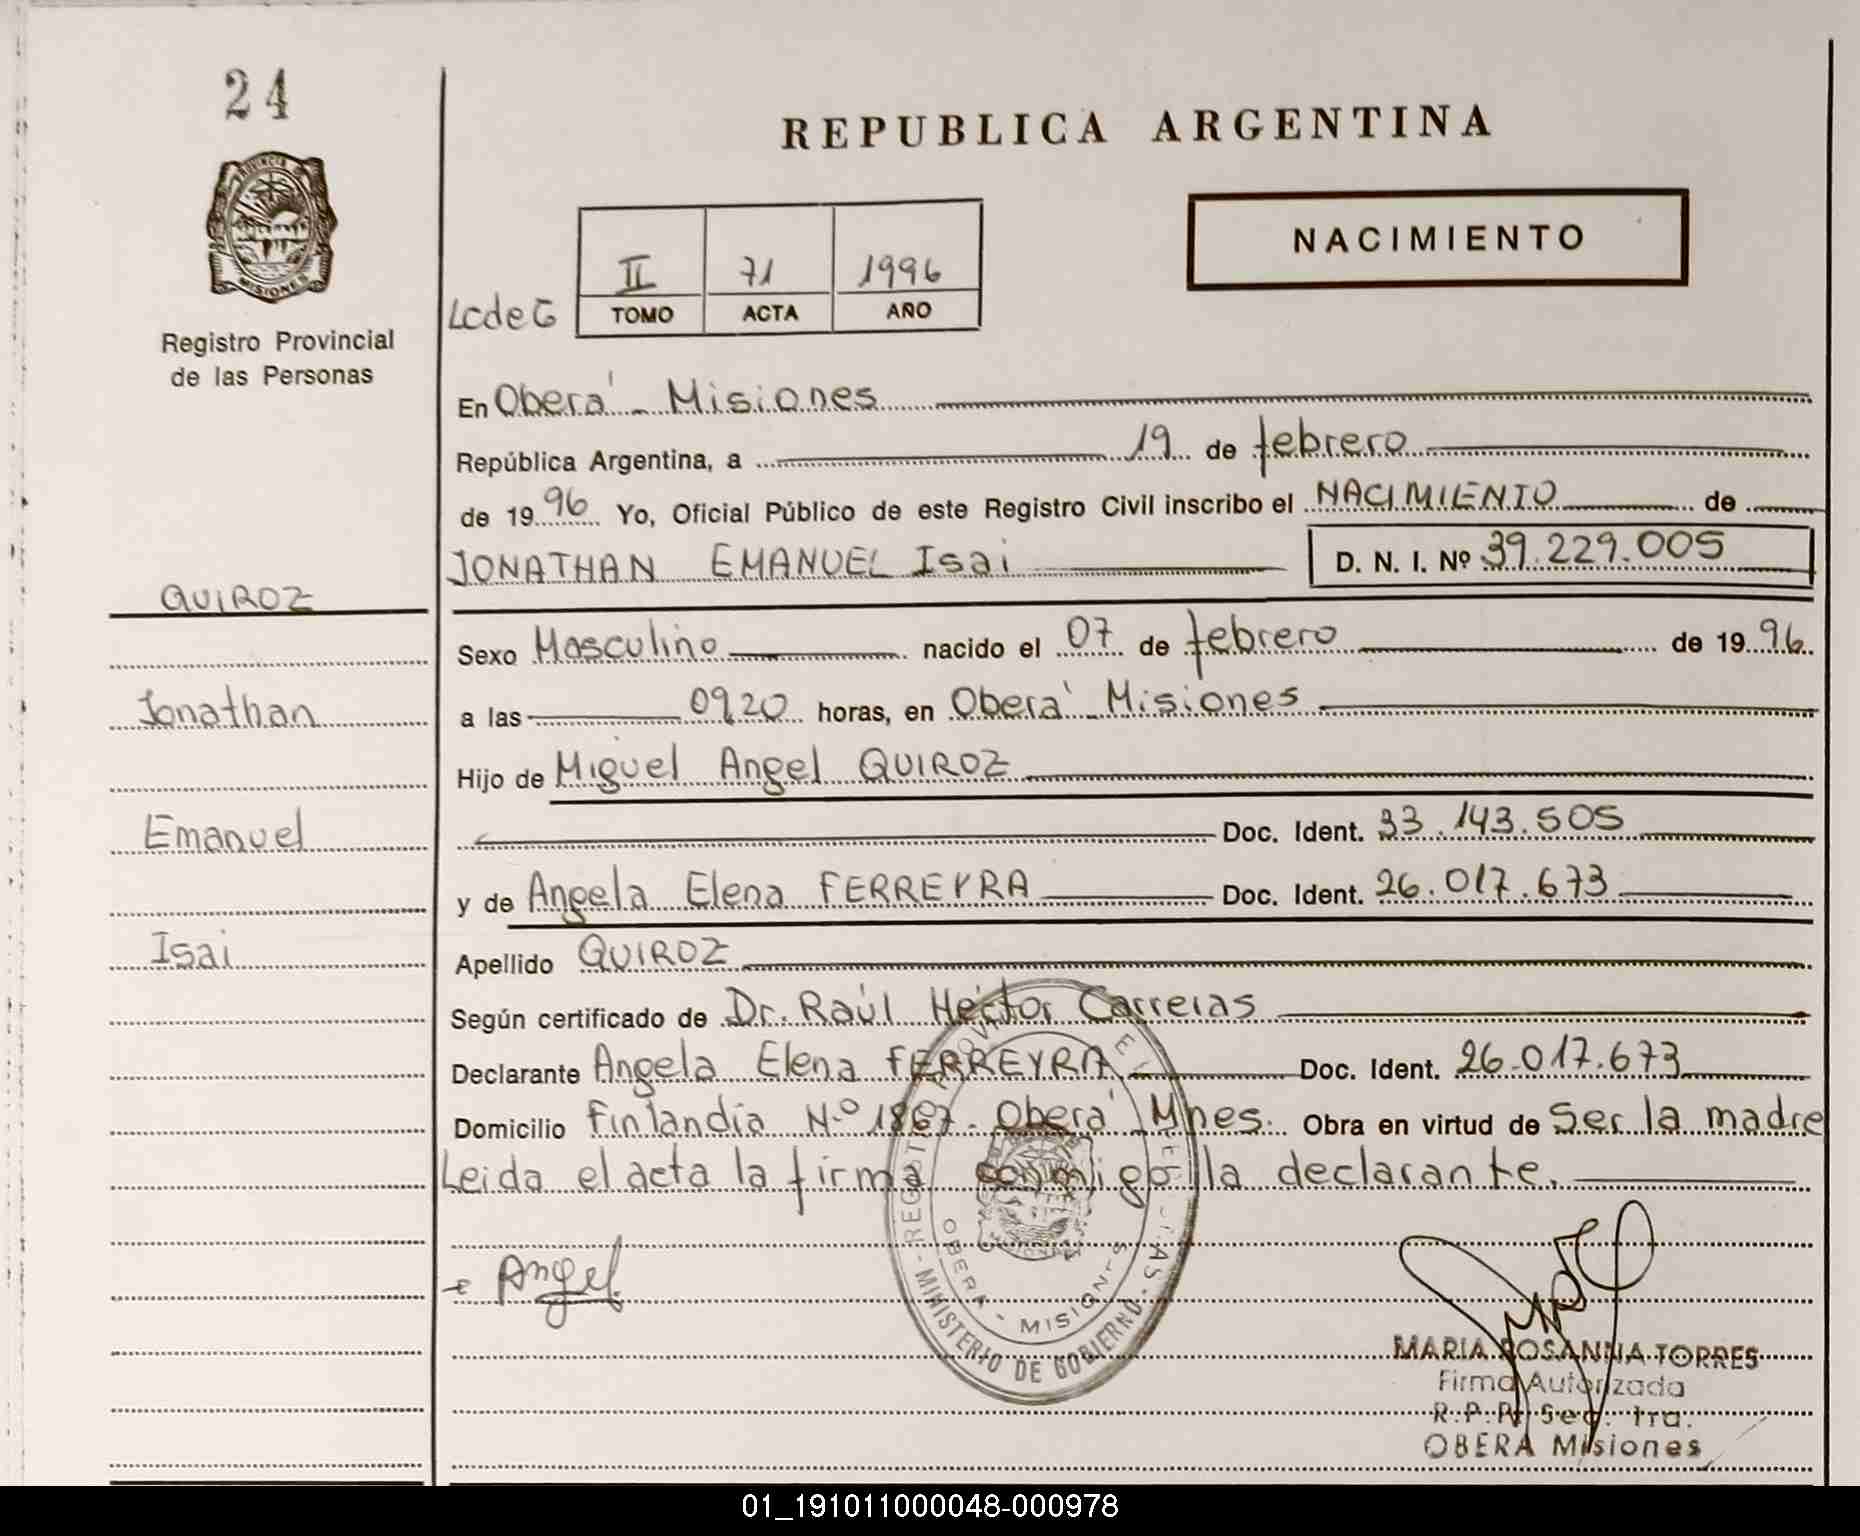 24
REPUBLICA ARGENTINA
PROVINCIA
MISIONES
NACIMIENTO
II 71 1996
LcdeG TOMO ACTA AÑO
Registro Provincial
de las Personas
En Oberá - Misiones
República Argentina, a 19 de febrero
de 1996 Yo, Oficial Público de este Registro Civil inscribo el NACIMIENTO de
JONATHAN EMANUEL Isai D. N. I. Nº 39.229.005
QUIROZ
Sexo Masculino nacido el 07 de febrero de 1996.
Jonathan
a las 0920 horas, en Oberá - Misiones
Hijo de Miguel Angel QUIROZ
Emanuel
Doc. Ident. 33.143.505
y de Angela Elena FERREYRA Doc. Ident. 26.017.673
Isai
Apellido QUIROZ
Según certificado de Dr. Raúl Héctor Carreras
Declarante Angela Elena FERREYRA Doc. Ident. 26.017.673
Domicilio Finlandia N.º 1867. Oberá - Mnes. Obra en virtud de Ser la madre
Leida el acta la firma conmigo la declarante.
Angel
OBERA - MISIONES
MINISTERIO DE GOBIERNO
MARIA ROSANNA TORRES
Firma Autorizada
OBERA Misiones
01_191011000048-000978